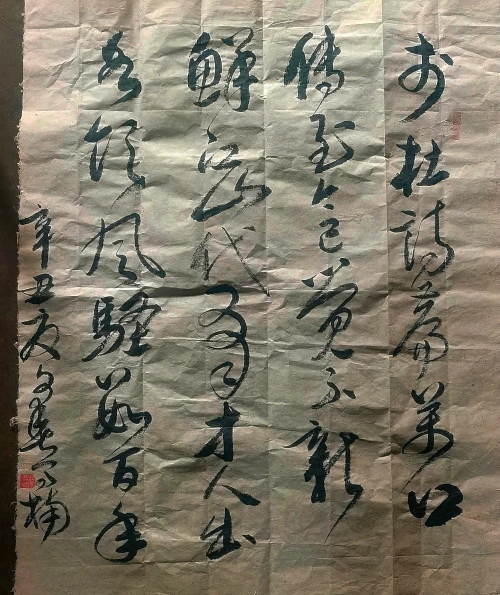 李杜詩篇萬口
傳至今已覺不新
鮮江山代有才人出
各領風騷數百年
辛丑夏